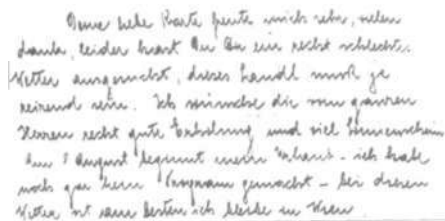 Deine liebe Karte freute mich sehr, vielen
danke, leider hast Du Dir ein recht schlechtes
Wetter ausgesucht, dieses Landl muß ja
reizend sein. Ich wünsche dir von ganzen
Herzen recht gute Erholung und viel Sonnenschein
Am 1 August beginnt mein Urlaub - ich habe
noch gar kein Programm gemacht - bei diesem
Wetter ist am besten ich bleibe in Wien